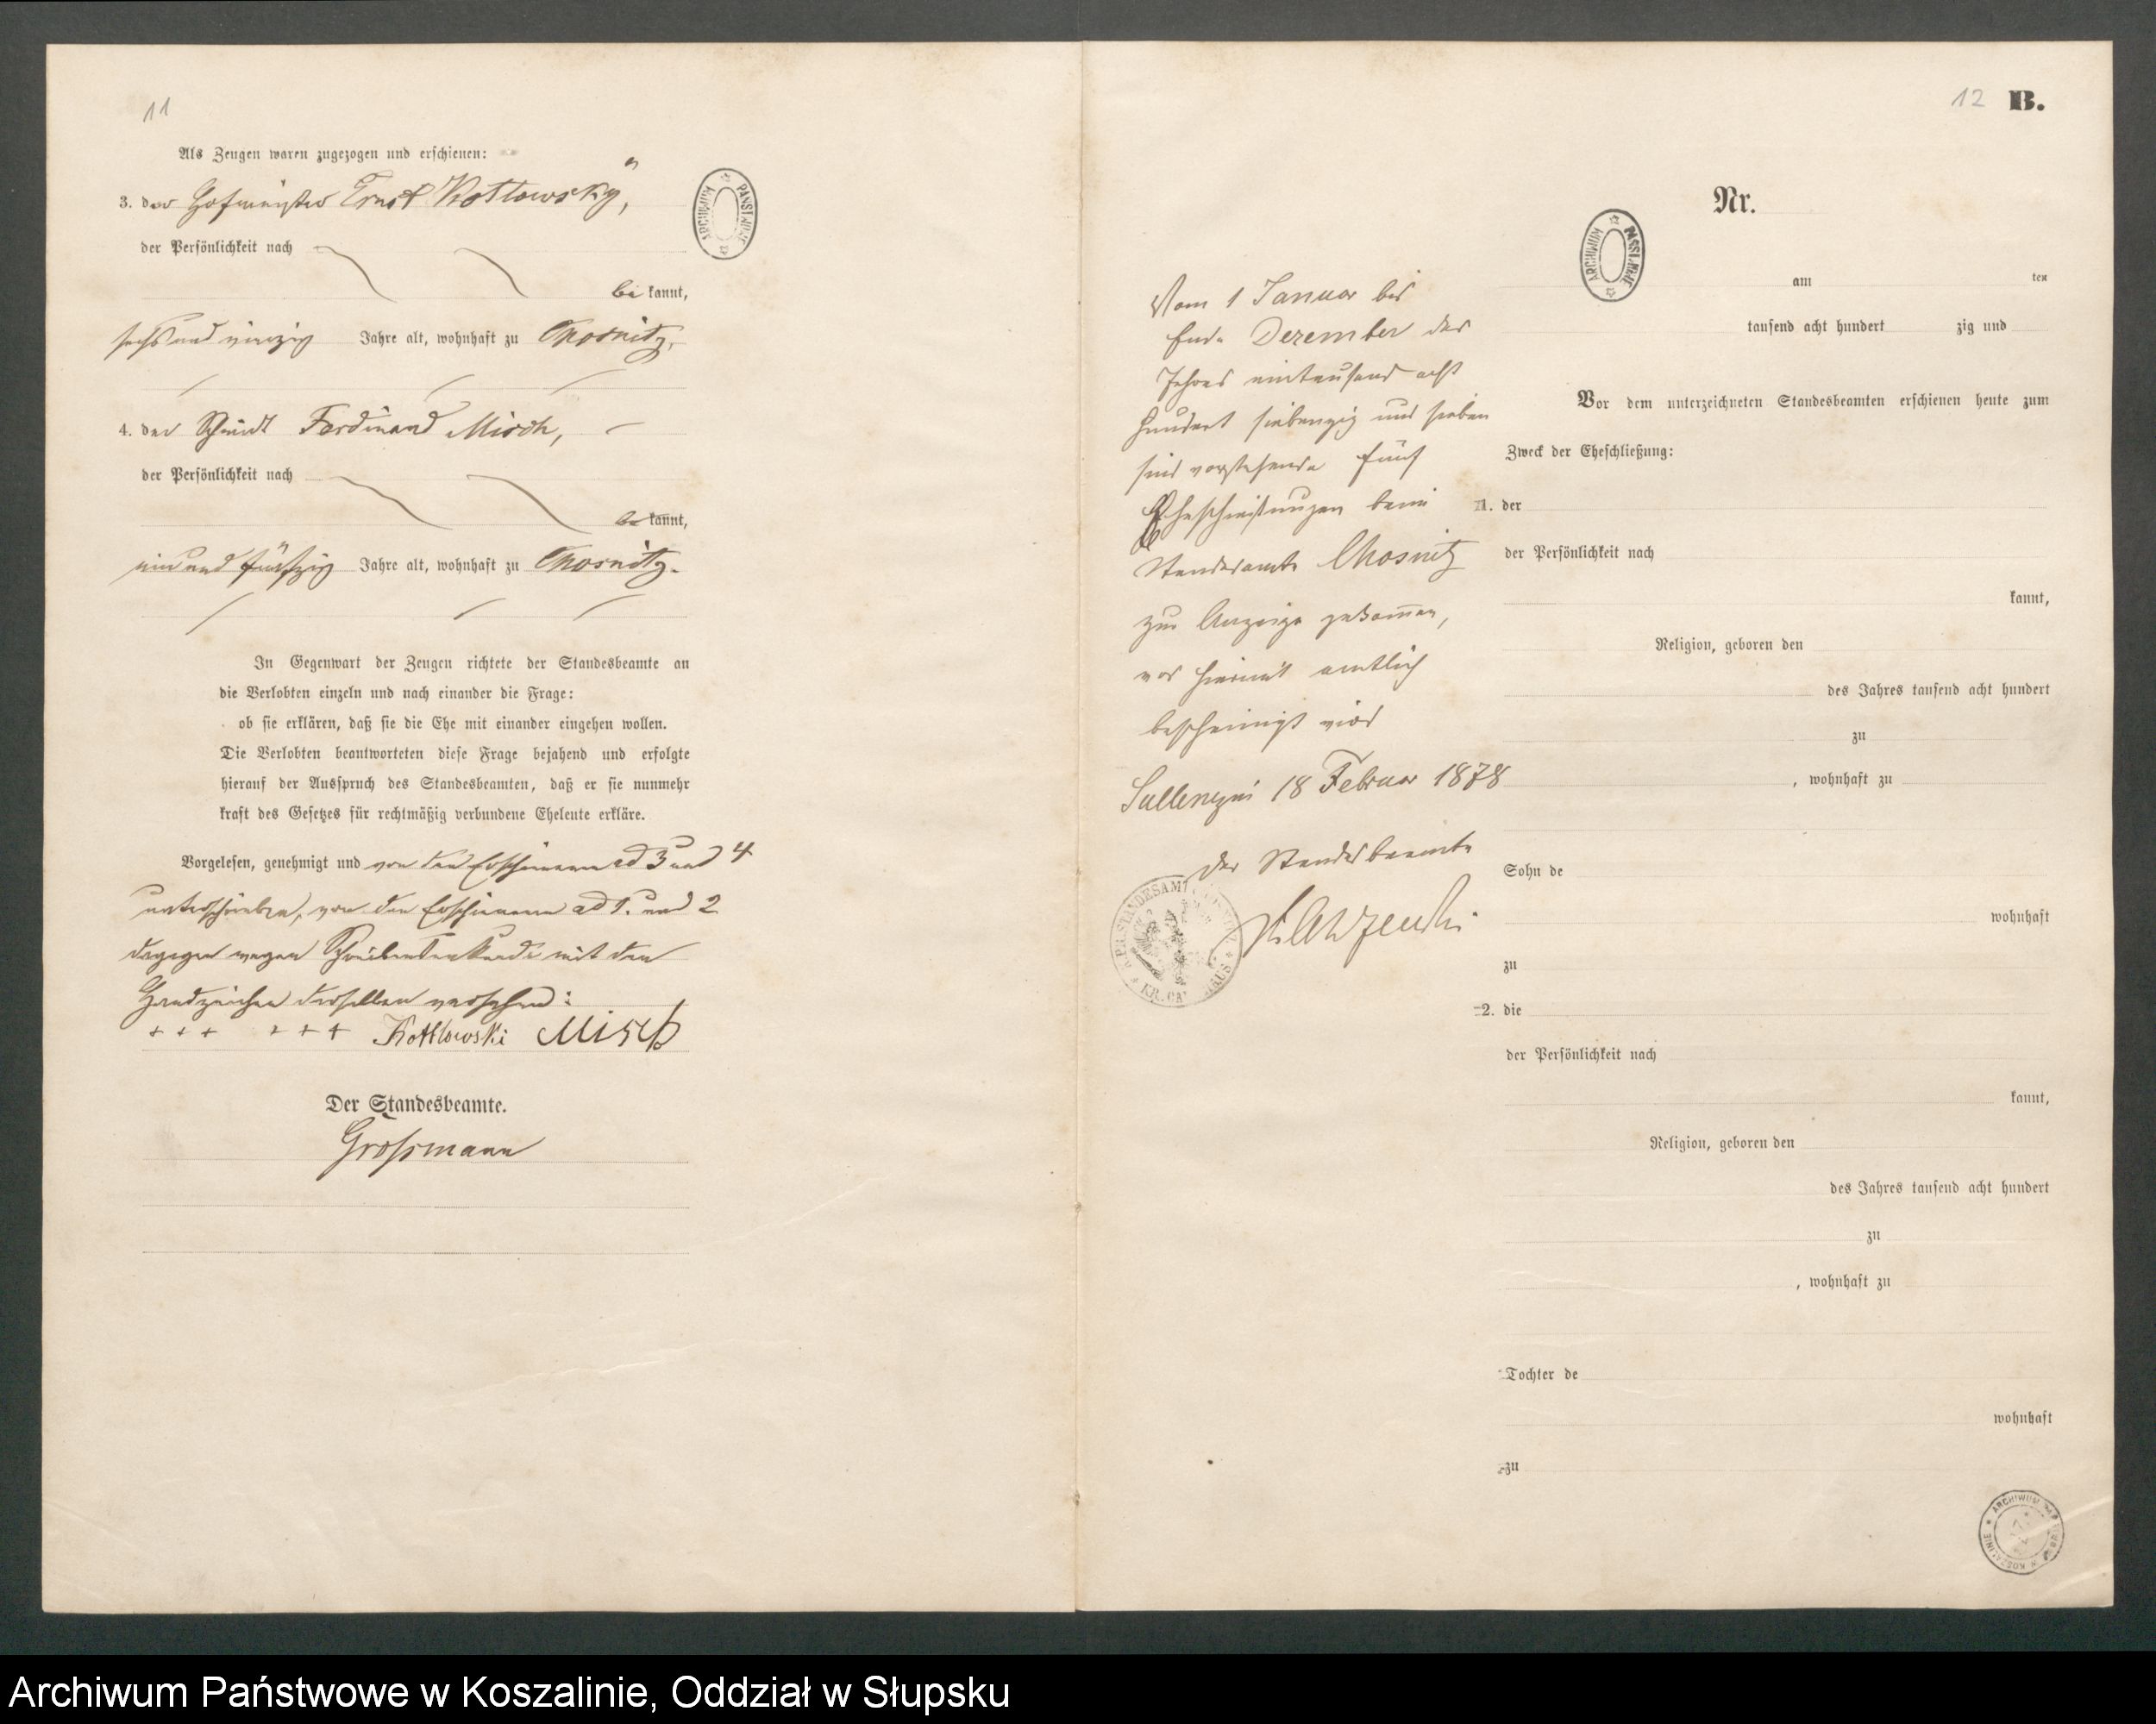 11
Als Zeugen waren zugezogen und erschienen:
3. der Hofmeister Ernst Kotlowsky,
der Persönlichkeit nach
be kannt,
sechs und vierzig Jahre alt, wohnhaft zu Chosnitz,
4. der Schmidt Ferdinand Misch,
der Persönlichkeit nach
be kannt,
ein und fünfzig Jahre alt, wohnhaft zu Chosnitz.
In Gegenwart der Zeugen richtete der Standesbeamte an
die Verlobten einzeln und nach einander die Frage:
ob sie erklären, daß sie die Ehe mit einander eingehen wollen.
Die Verlobten beantworteten diese Frage bejahend und erfolgte
hierauf der Ausspruch des Standesbeamten, daß er sie nunmehr
kraft des Gesetzes für rechtmäßig verbundene Eheleute erkläre.
Vorgelesen, genehmigt und von den Erschienenen ad 3 und 4
unterschrieben, von den Erschienenen ad 1. und 2
dagegen wegen Schreibensunkunde mit den
Handzeichen derselben versehen:
+ + + + + + Kottlowski Misch
Der Standesbeamte.
Grossmann
ARCHIWUM PAŃSTWOWE
12 B.
Nr.
ARCHIWUM PAŃSTWOWE
Vom 1 Januar bis
Ende Dezember des
Jahres eintausend acht
hundert siebenzig und sieben
sind vorstehende fünf
Eheschließungen beim
Standesamte Chosnitz
zur Anzeige gekommen,
was hiermit amtlich
bescheinigt wird
Sullenczin 18 Februar 1878
Der Standesbeamte
am ten
tausend acht hundert zig und
Vor dem unterzeichneten Standesbeamten erschienen heute zum
Zweck der Eheschließung:
1. der
der Persönlichkeit nach
kannt,
Religion, geboren den
des Jahres tausend acht hundert
zu
, wohnhaft zu
Sohn de
wohnhaft
zu
2. die
der Persönlichkeit nach
kannt,
Religion, geboren den
des Jahres tausend acht hundert
zu
, wohnhaft zu
Tochter de
wohnhaft
zu
Archiwum Państwowe w Koszalinie, Oddział w Słupsku